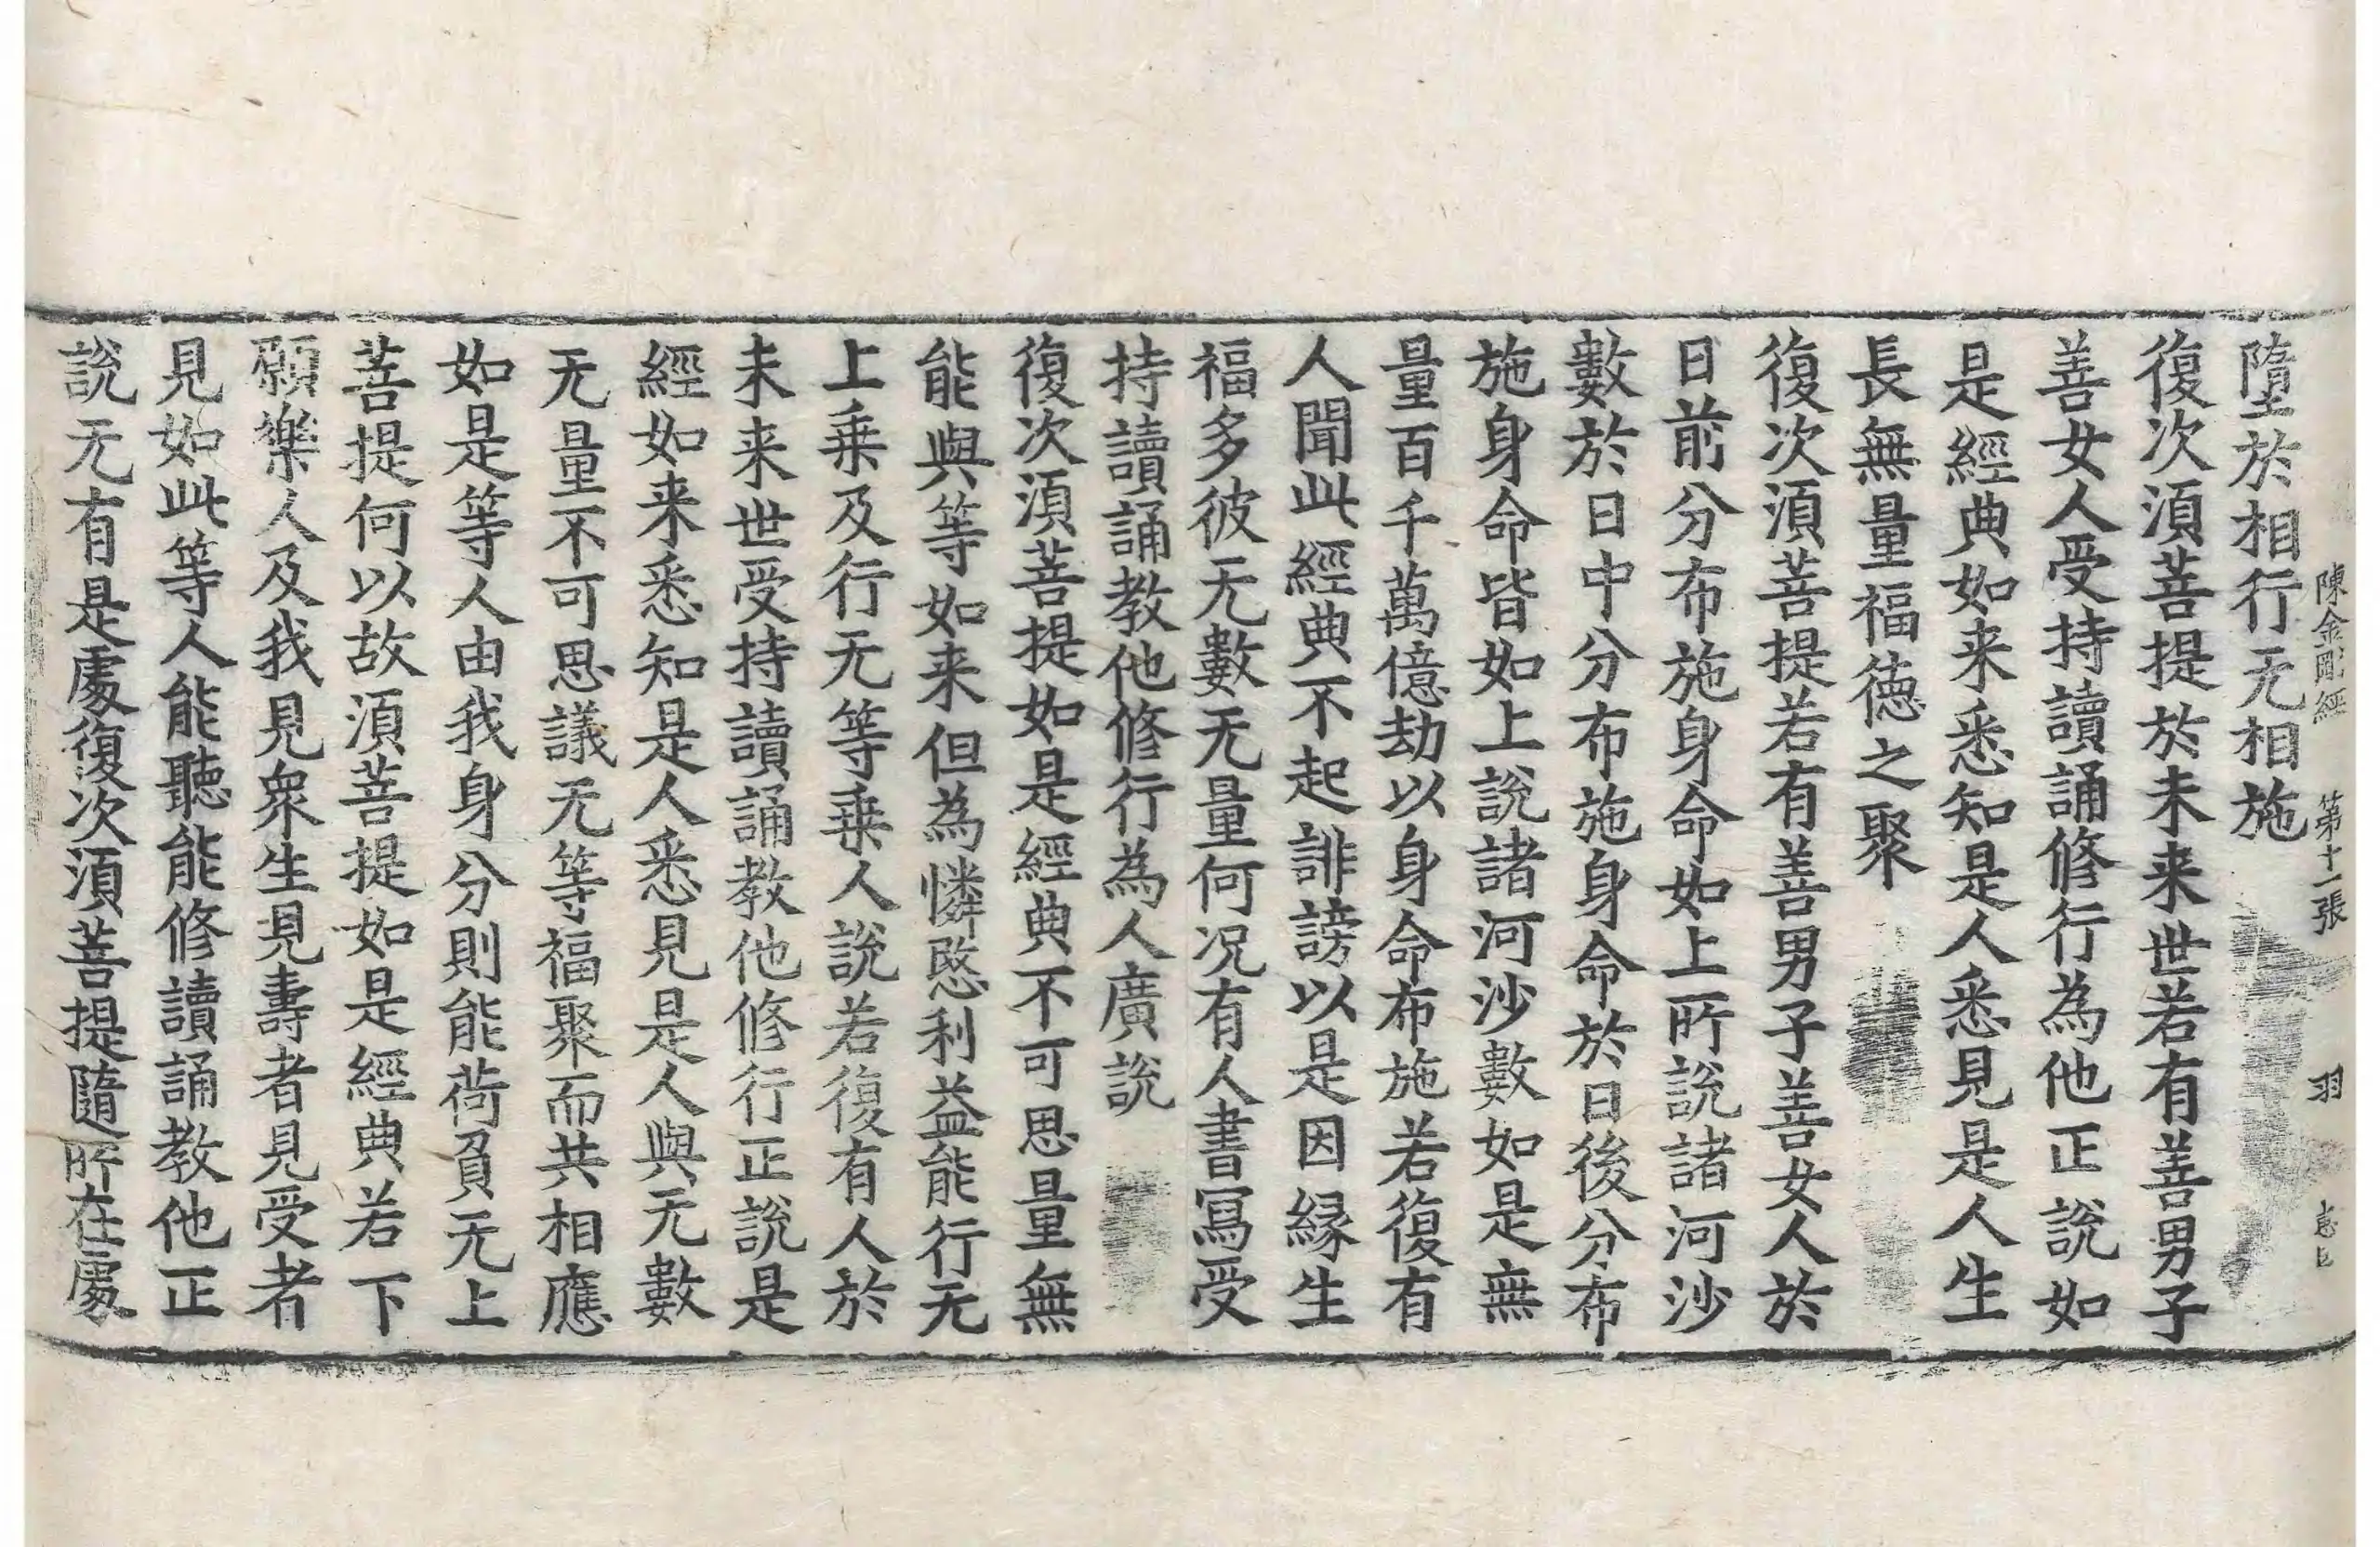 陳金剛經　第十一張　羽
墮於相行无相施
復次湏菩提於未来世若有善男子
善女人受持讀誦修行為他正說如
是經典如来悉知是人悉見是人生
長無量福德之聚
復次湏菩提若有善男子善女人於
日前分布施身命如上所說諸河沙
數於日中分布施身命於日後分布
施身命皆如上說諸河沙數如是無
量百千萬億劫以身命布施若復有
人聞此經典不起誹謗以是因縁生
福多彼无數无量何况有人書寫受
持讀誦教他修行為人廣說
復次湏菩提如是經典不可思量無
能與等如来但為憐愍利益能行无
上乗及行无等乗人說若復有人於
未来世受持讀誦教他修行正說是
經如来悉知是人悉見是人與无數
无量不可思議无等福聚而共相應
如是等人由我身分則能荷負无上
菩提何以故湏菩提如是經典若下
願樂人及我見衆生見壽者見受者
見如此等人能聽能修讀誦教他正
說无有是處復次湏菩提隨所在處